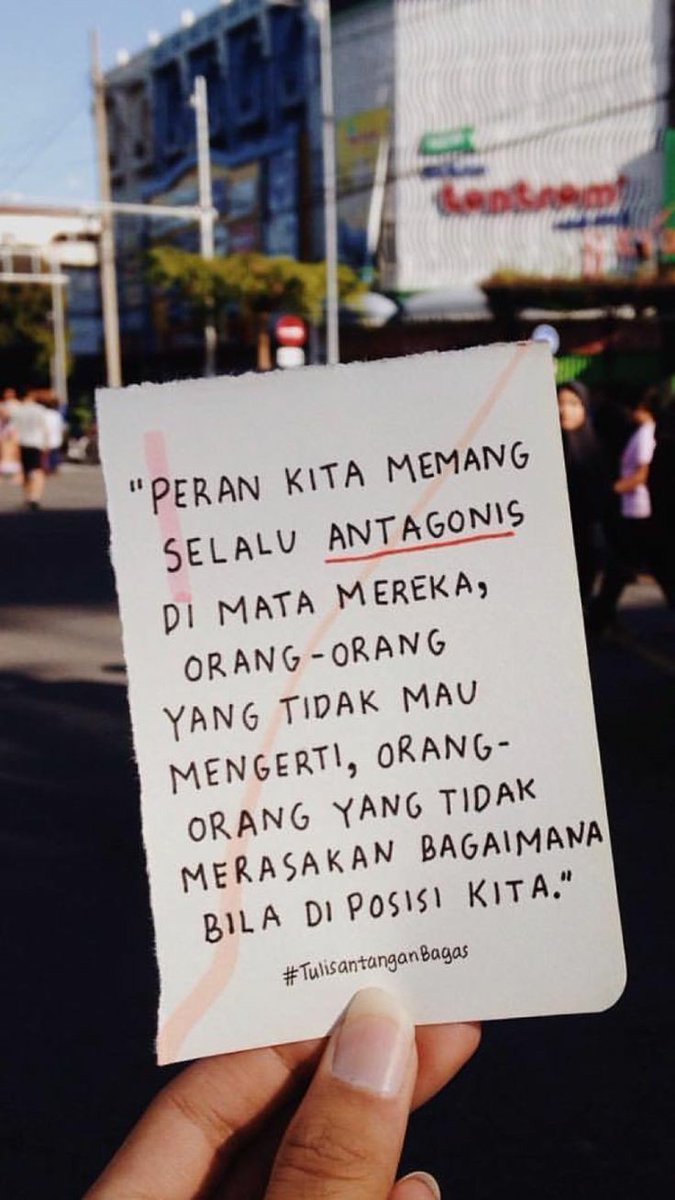 tentrem
"PERAN KITA MEMANG
SELALU ANTAGONIS
DI MATA MEREKA,
ORANG-ORANG
YANG TIDAK MAU
MENGERTI, ORANG-
ORANG YANG TIDAK
MERASAKAN BAGAIMANA
BILA DI POSISI KITA."
#TulisantanganBagas